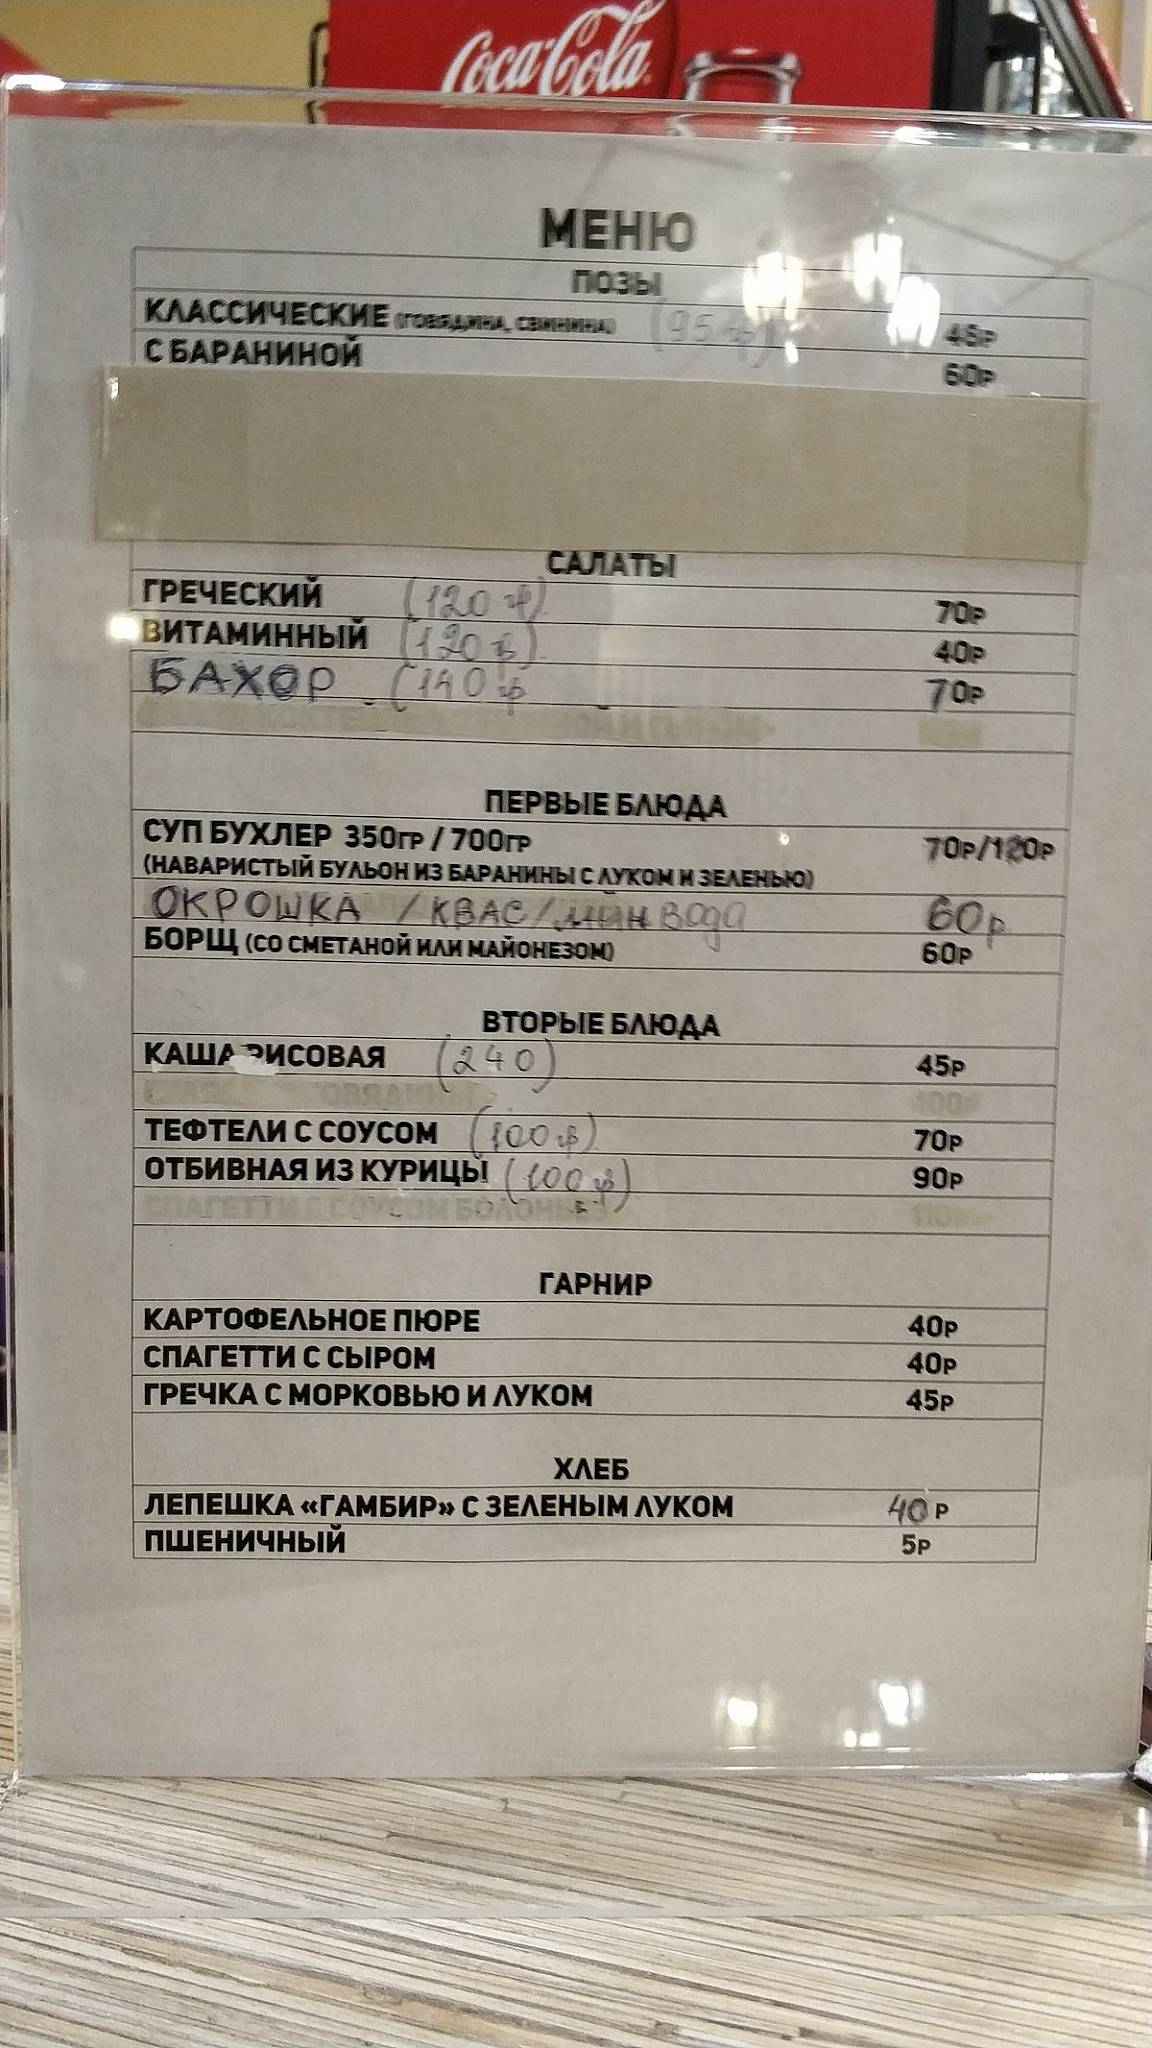 Coca-Cola
МЕНЮ
ПОЗЫ
КЛАССИЧЕСКИЕ (ГОВЯДИНА, СВИНИНА) (95 гр) 48Р
С БАРАНИНОЙ 60Р
САЛАТЫ
ГРЕЧЕСКИЙ (120 гр) 70Р
ВИТАМИННЫЙ (120 гр) 40Р
БАХОР (140 гр 70Р
ПЕРВЫЕ БЛЮДА
СУП БУХЛЕР 350ГР / 700ГР 70Р/120Р
(НАВАРИСТЫЙ БУЛЬОН ИЗ БАРАНИНЫ С ЛУКОМ И ЗЕЛЕНЬЮ)
ОКРОШКА / КВАС/минвода 60р
БОРЩ (СО СМЕТАНОЙ ИЛИ МАЙОНЕЗОМ) 60Р
ВТОРЫЕ БЛЮДА
КАША РИСОВАЯ (240) 45Р
100Р
ТЕФТЕЛИ С СОУСОМ (100 гр) 70Р
ОТБИВНАЯ ИЗ КУРИЦЫ (100 гр) 90Р
СПАГЕТТИ С СОУСОМ
ГАРНИР
КАРТОФЕЛЬНОЕ ПЮРЕ 40Р
СПАГЕТТИ С СЫРОМ 40Р
ГРЕЧКА С МОРКОВЬЮ И ЛУКОМ 45Р
ХЛЕБ
ЛЕПЕШКА «ГАМБИР» С ЗЕЛЕНЫМ ЛУКОМ 40 Р
ПШЕНИЧНЫЙ 5Р